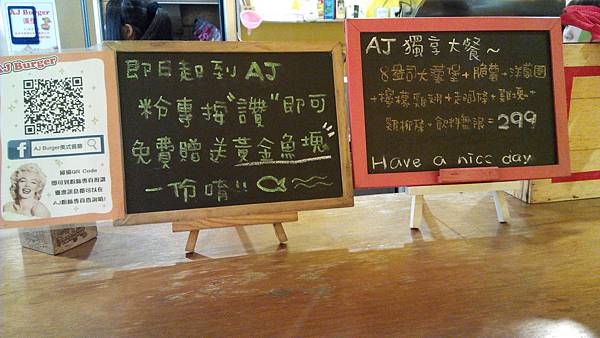 AJ Burger
AJ Burger
AJ Burger美式餐廳
掃描QR Code
即日起到AJ
粉專按"讚"即可
免費贈送黃金魚塊
一份唷!!
AJ 獨享大餐~
8盎司大薯堡+脆薯+洋蔥圈
+檸檬雞翅+起司條+雞塊+
雞柳條+飲料無限=299
Have a nice day